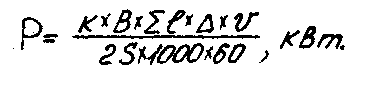 P= K×B×Σℓ×Δ×v / 2S×1000×60 , кВт.